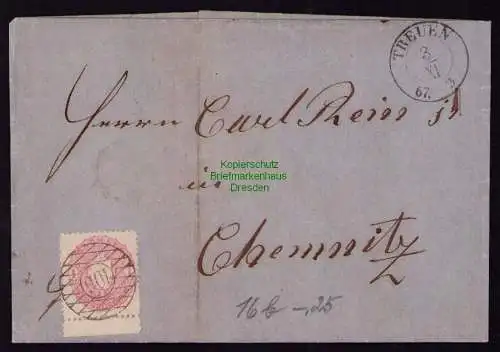 TREUEN
3/
XI
67.
Herrn Carl Rein jr
in
Chemnitz
Kopierschutz
Briefmarkenhaus
Dresden
16 b –,25